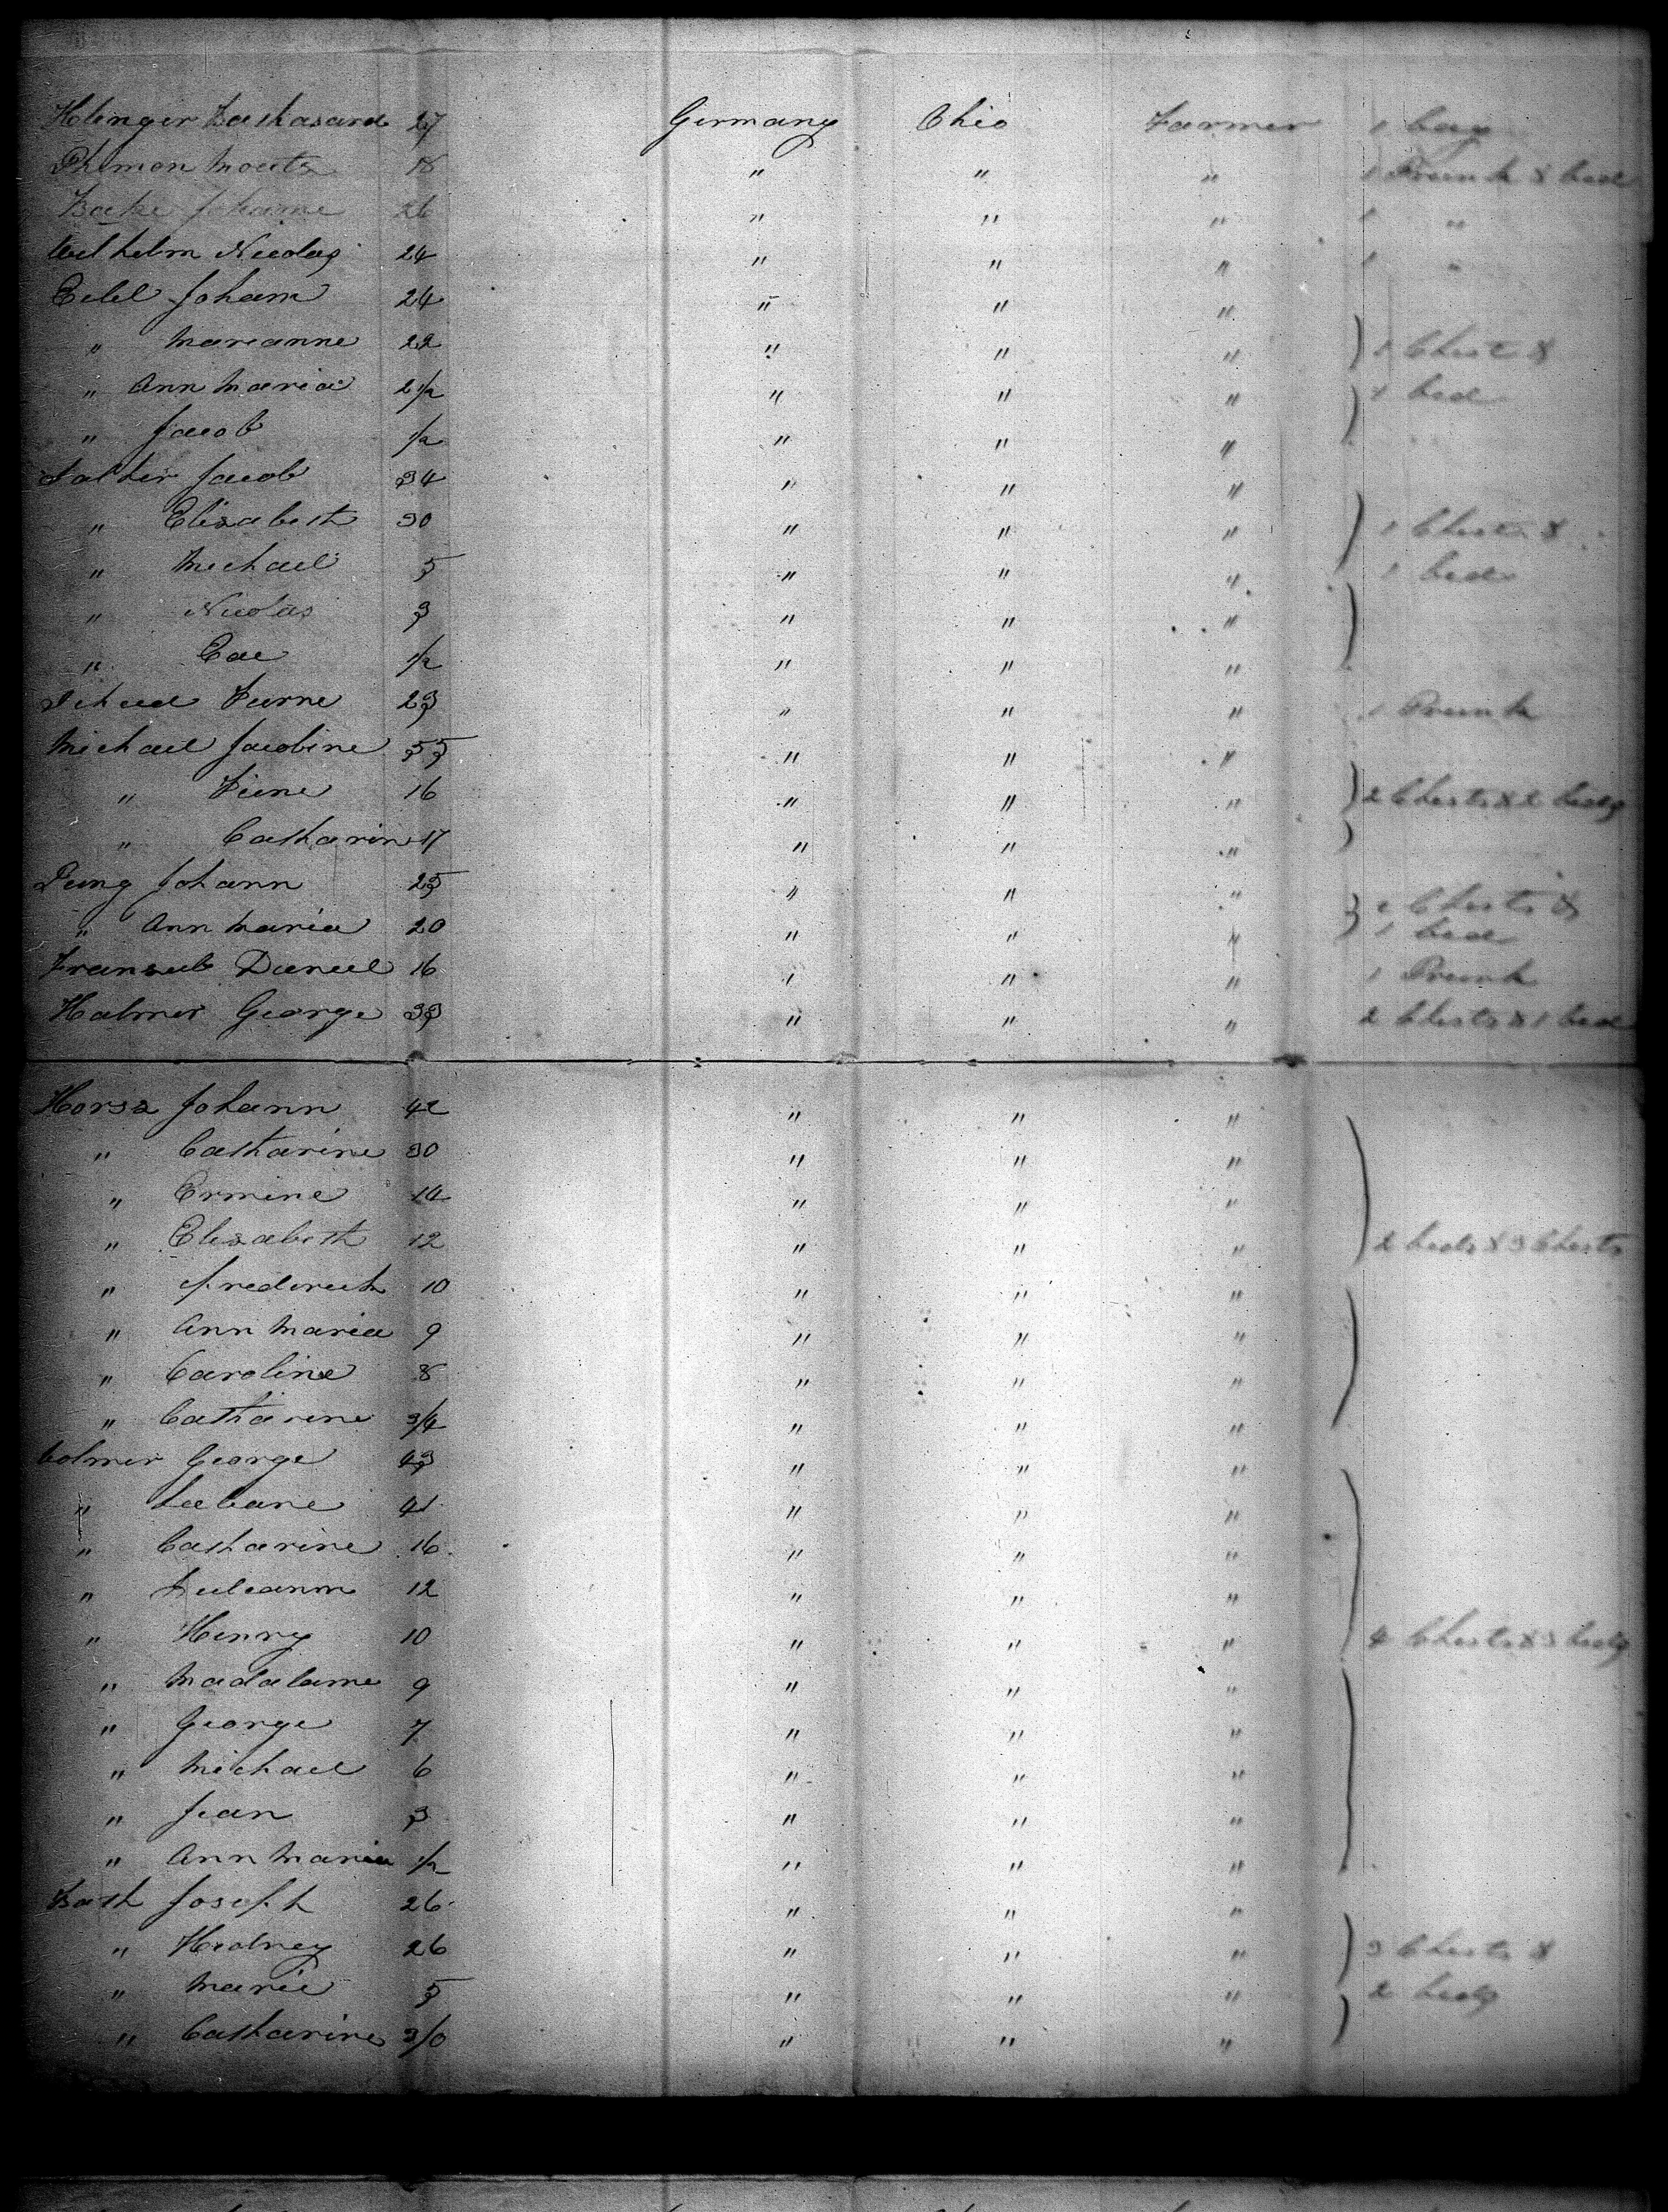 Holenger Bathasard 27 Germany Ohio Farmer 1 bag
Phemon Mouts 18 " " " 1 Trunk & bed
Johanne 26 " " " 1 "
Wilhelm Nicolas 24 " " " 1 "
Edel Joham 24 " " "
" Marianne 22 " " " 1 Chest &
" Ann Maria 2 1/2 " " " 1 bed
" Jacob 1/2 " " "
Salter Jacob 34 " " "
" Elisabeth 30 " " " 1 Chest &
" Michael 5 " " " 1 bed
" Nicolas 3 " " "
" 1/2 " " "
23 " " " 1 Trunk
Michael Jacobine 55 " " "
" 16 " " " 2 Chests & 2 beds
" Catharin 17 " " "
Jung Johann 25 " " " 2 Chests &
" Ann Maria 20 " " " 1 bed
Daniel 16 " " " 1 Trunk
Halmer George 33 " " " 2 Chests & 1 bed
Horsz Johann 42 " " "
" Catharine 30 " " "
" Ermine 14 " " "
" Elisabeth 12 " " " 2 beds & 3 Chests
" Fredireck 10 " " "
" Ann Maria 9 " " "
" Caroline 8 " " "
" Catharine 3/4 " " "
Colmer George 43 " " "
" 41 " " "
" Catharine 16 " " "
" Juleanne 12 " " "
" Henry 10 " " " 4 Chests & 3 beds
" Madalame 9 " " "
" George 7 " " "
" Michael 6 " " "
" Jean 3 " " "
" Ann Maria 1/2 " " "
Bath Joseph 26 " " "
" 26 " " " 3 Chests &
" Marie 5 " " " 2 beds
" Catharine 3/0 " " "